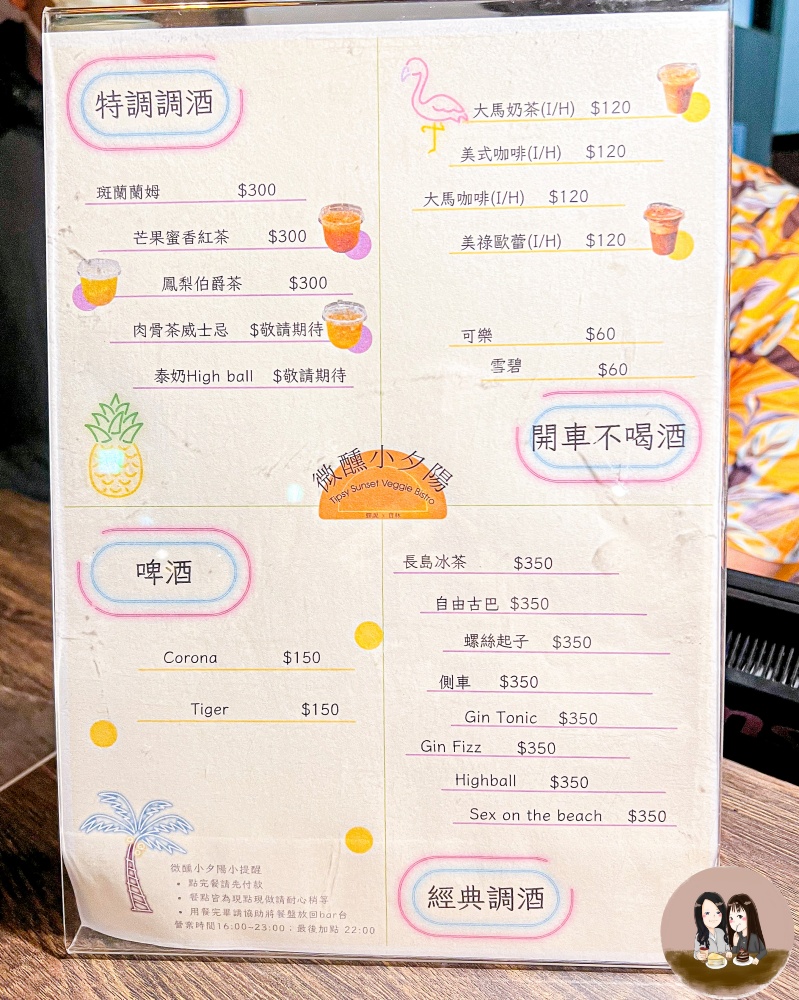 特調調酒
斑蘭蘭姆 $300
芒果蜜香紅茶 $300
鳳梨伯爵茶 $300
肉骨茶威士忌 $敬請期待
泰奶High ball $敬請期待
大馬奶茶(I/H) $120
美式咖啡(I/H) $120
大馬咖啡(I/H) $120
美祿歐蕾(I/H) $120
可樂 $60
雪碧 $60
開車不喝酒
微醺小夕陽
Tipsy Sunset Veggie Bistro
啤酒
Corona $150
Tiger $150
長島冰茶 $350
自由古巴 $350
螺絲起子 $350
側車 $350
Gin Tonic $350
Gin Fizz $350
Highball $350
Sex on the beach $350
經典調酒
微醺小夕陽小提醒
• 點完餐請先付款
• 餐點皆為現點現做請耐心稍等
• 用餐完畢請協助將餐盤放回bar台
營業時間16:00~23:00；最後加點 22:00